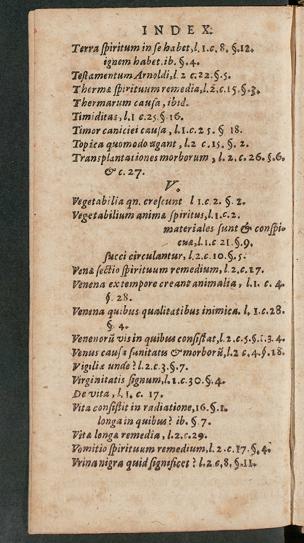 INDEX.
Terra spiritum in se habet, l.1.c.8.§.12.
ignem habet. ib. §.4.
Testamentum Arnoldi, l.2 c.22.§.5.
Thermæ spirituum remedia, l.2.c.15.§.3.
Thermarum causa, ibid.
Timiditas, l.1 c.25.§.16.
Timor caniciei causa, l.1.c.25. § 18.
Topica quomodo agant, l.2 c.15. §. 2.
Transplantationes morborum, l.2.c.26.§.6.
& c.27.
V.
Vegetabilia qn. crescunt l 1.c.2. §. 2.
Vegetabilium animæ spiritus, l.1.c.2.
materiales sunt & conspi-
cua, l.1 c.21.§.9.
succi circulantur, l.2.c.10.§.5.
Venæ sectio spirituum remedium, l.2.c.17.
Venena ex tempore creant animalia, l.1. c. 4.
§. 28.
Venena quibus qualitatibus inimica. l. 1.c.28.
§. 4.
Venenorũ vis in quibus consistat, l.2.c.5.§.1.3.4.
Venus causa sanitatis & morborũ, l.2 c.4.§.18.
Vigiliæ unde? l.2.c.3.§.7.
Virginitatis signum, l.1.c.30.§.4.
De vita, l.1. c. 17.
Vita consistit in radiatione, 16.§.1.
longa in quibus? ib. §.7.
Vita longa remedia, l.2.c.29.
Vomitio spirituum remedium, l.2.c.17.§.4.
Vrina nigra quid significet? l.2.c.8.§.11.